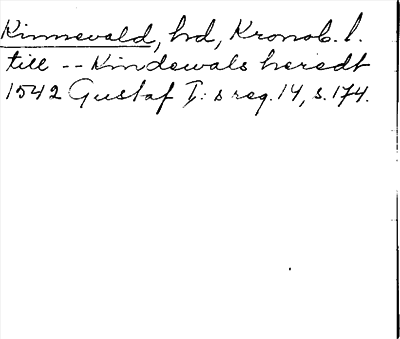 Kinnevald, hd, Kronob. l.
till -- Kindewals heredt
1542 Gustaf I:s reg. 14, s. 174.